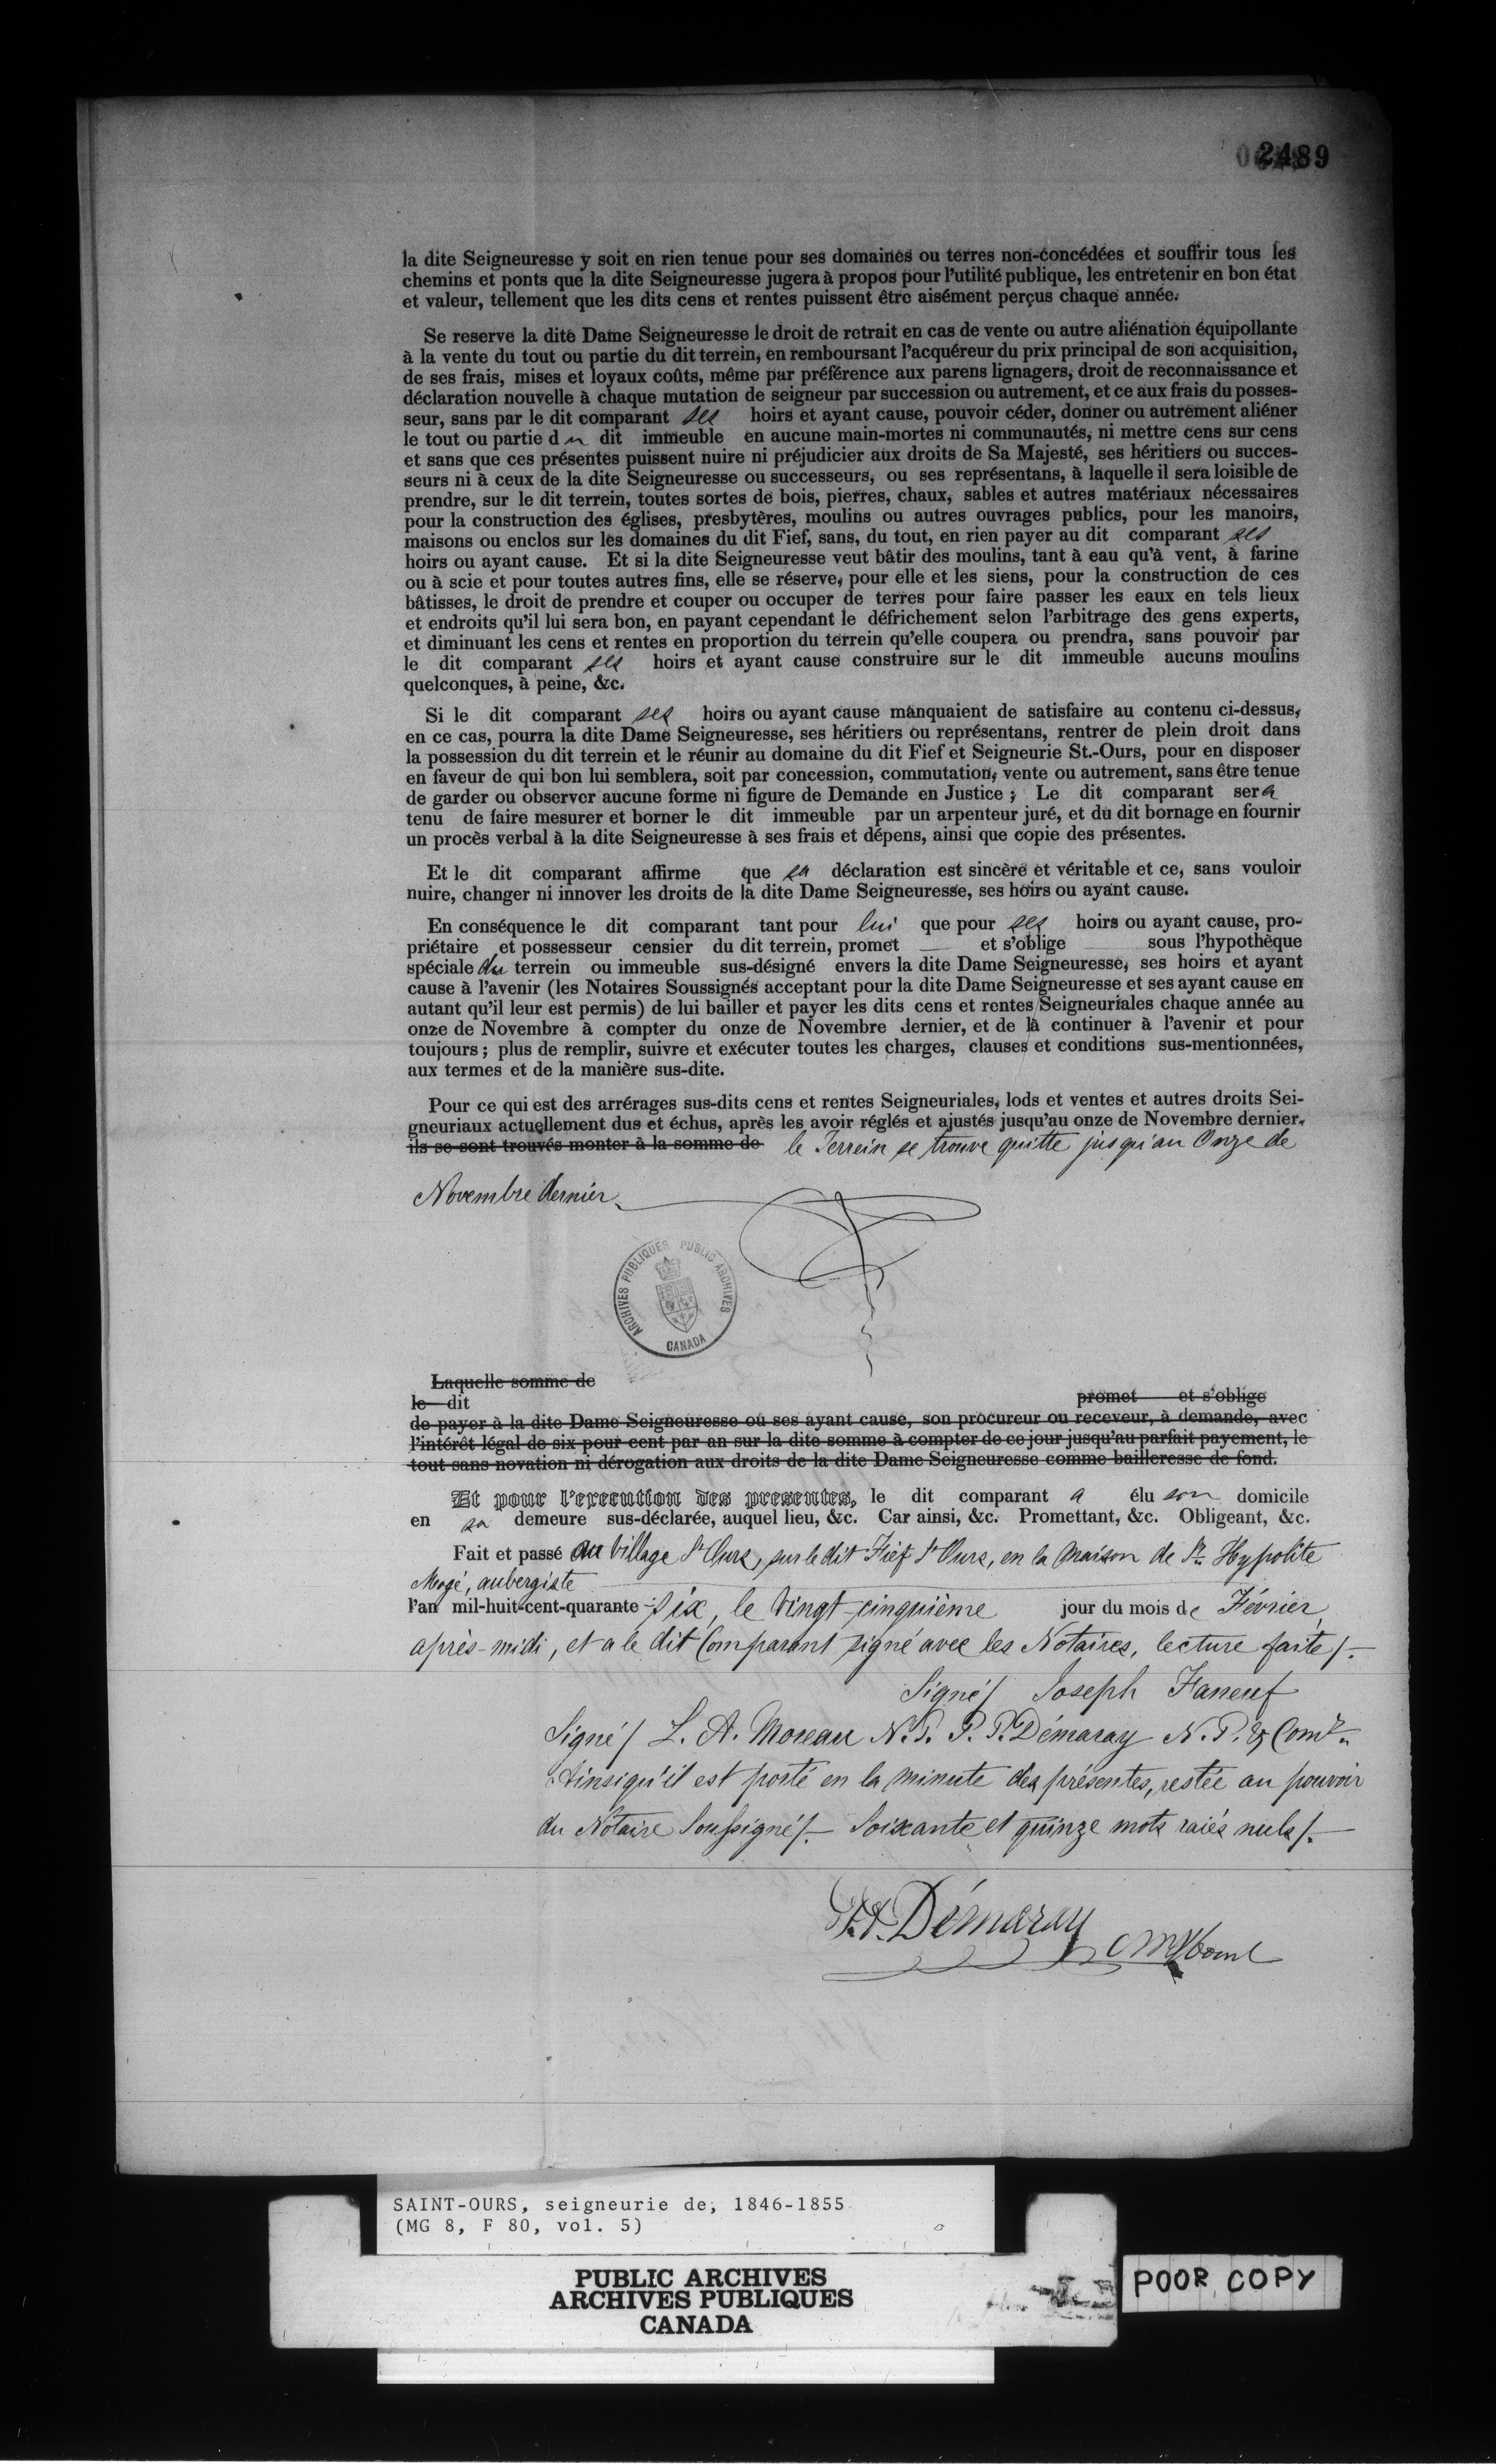 2489
la dite Seigneuresse y soit en rien tenue pour ses domaines ou terres non-concédées et souffrir tous les
chemins et ponts que la dite Seigneuresse jugera à propos pour l'utilité publique, les entretenir en bon état
et valeur, tellement que les dits cens et rentes puissent être aisément perçus chaque année.
Se reserve la dite Dame Seigneuresse le droit de retrait en cas de vente ou autre aliénation équipollante
à la vente du tout ou partie du dit terrein, en remboursant l'acquéreur du prix principal de son acquisition,
de ses frais, mises et loyaux coûts, même par préférence aux parens lignagers, droit de reconnaissance et
déclaration nouvelle à chaque mutation de seigneur par succession ou autrement, et ce aux frais du posses-
seur, sans par le dit comparant ses hoirs et ayant cause, pouvoir céder, donner ou autrement aliéner
le tout ou partie du dit immeuble en aucune main-mortes ni communautés, ni mettre cens sur cens
et sans que ces présentes puissent nuire ni préjudicier aux droits de Sa Majesté, ses héritiers ou succes-
seurs ni à ceux de la dite Seigneuresse ou successeurs, ou ses représentans, à laquelle il sera loisible de
prendre, sur le dit terrein, toutes sortes de bois, pierres, chaux, sables et autres matériaux nécessaires
pour la construction des églises, presbytères, moulins ou autres ouvrages publics, pour les manoirs,
maisons ou enclos sur les domaines du dit Fief, sans, du tout, en rien payer au dit comparant ses
hoirs ou ayant cause. Et si la dite Seigneuresse veut bâtir des moulins, tant à eau qu'à vent, à farine
ou à scie et pour toutes autres fins, elle se réserve, pour elle et les siens, pour la construction de ces
bâtisses, le droit de prendre et couper ou occuper de terres pour faire passer les eaux en tels lieux
et endroits qu'il lui sera bon, en payant cependant le défrichement selon l'arbitrage des gens experts,
et diminuant les cens et rentes en proportion du terrein qu'elle coupera ou prendra, sans pouvoir par
le dit comparant ses hoirs et ayant cause construire sur le dit immeuble aucuns moulins
quelconques, à peine, &c.
Si le dit comparant ses hoirs ou ayant cause manquaient de satisfaire au contenu ci-dessus,
en ce cas, pourra la dite Dame Seigneuresse, ses héritiers ou représentans, rentrer de plein droit dans
la possession du dit terrein et le réunir au domaine du dit Fief et Seigneurie St.-Ours, pour en disposer
en faveur de qui bon lui semblera, soit par concession, commutation, vente ou autrement, sans être tenue
de garder ou observer aucune forme ni figure de Demande en Justice ; Le dit comparant sera
tenu de faire mesurer et borner le dit immeuble par un arpenteur juré, et du dit bornage en fournir
un procès verbal à la dite Seigneuresse à ses frais et dépens, ainsi que copie des présentes.
Et le dit comparant affirme que sa déclaration est sincère et véritable et ce, sans vouloir
nuire, changer ni innover les droits de la dite Dame Seigneuresse, ses hoirs ou ayant cause.
En conséquence le dit comparant tant pour lui que pour ses hoirs ou ayant cause, pro-
priétaire et possesseur censier du dit terrein, promet — et s'oblige — sous l'hypothèque
spéciale du terrein ou immeuble sus-désigné envers la dite Dame Seigneuresse, ses hoirs et ayant
cause à l'avenir (les Notaires Soussignés acceptant pour la dite Dame Seigneuresse et ses ayant cause en
autant qu'il leur est permis) de lui bailler et payer les dits cens et rentes Seigneuriales chaque année au
onze de Novembre à compter du onze de Novembre dernier, et de là continuer à l'avenir et pour
toujours ; plus de remplir, suivre et exécuter toutes les charges, clauses et conditions sus-mentionnées,
aux termes et de la manière sus-dite.
Pour ce qui est des arrérages sus-dits cens et rentes Seigneuriales, lods et ventes et autres droits Sei-
gneuriaux actuellement dus et échus, après les avoir réglés et ajustés jusqu'au onze de Novembre dernier.
ils se sont trouvés monter à la somme de le Terrein se trouve quitte jusqu'au Onze de
Novembre dernier
ARCHIVES PUBLIQUES PUBLIC ARCHIVES
CANADA
Laquelle somme de
le dit promet et s'oblige
de payer à la dite Dame Seigneuresse ou ses ayant cause, son procureur ou receveur, à demande, avec
l'intérêt légal de six pour cent par an sur la dite somme à compter de ce jour jusqu'au parfait payement, le
tout sans novation ni dérogation aux droits de la dite Dame Seigneuresse comme bailleresse de fond.
Et pour l'execution des presentes, le dit comparant a élu son domicile
en sa demeure sus-déclarée, auquel lieu, &c. Car ainsi, &c. Promettant, &c. Obligeant, &c.
Fait et passé au Village St Ours, sur le dit Fief St Ours, en la maison de Sr. Hypolite
Mogé, aubergiste
l'an mil-huit-cent-quarante-six, le Vingt-cinquième jour du mois de Février
après-midi, et a le dit Comparant signé avec les Notaires, lecture faite/.
Signé/ Joseph Faneuf
Signé/ L. A. Moreau N.P. P. P. Démaray N. P. &
Ainsi qu'il est porté en la minute des présentes, restée au pouvoir
du Notaire Soussigné/. Soixante et quinze mots raiés nuls/.
P. P. Démaray
SAINT-OURS, seigneurie de, 1846-1855
(MG 8, F 80, vol. 5)
PUBLIC ARCHIVES
ARCHIVES PUBLIQUES
CANADA
POOR COPY